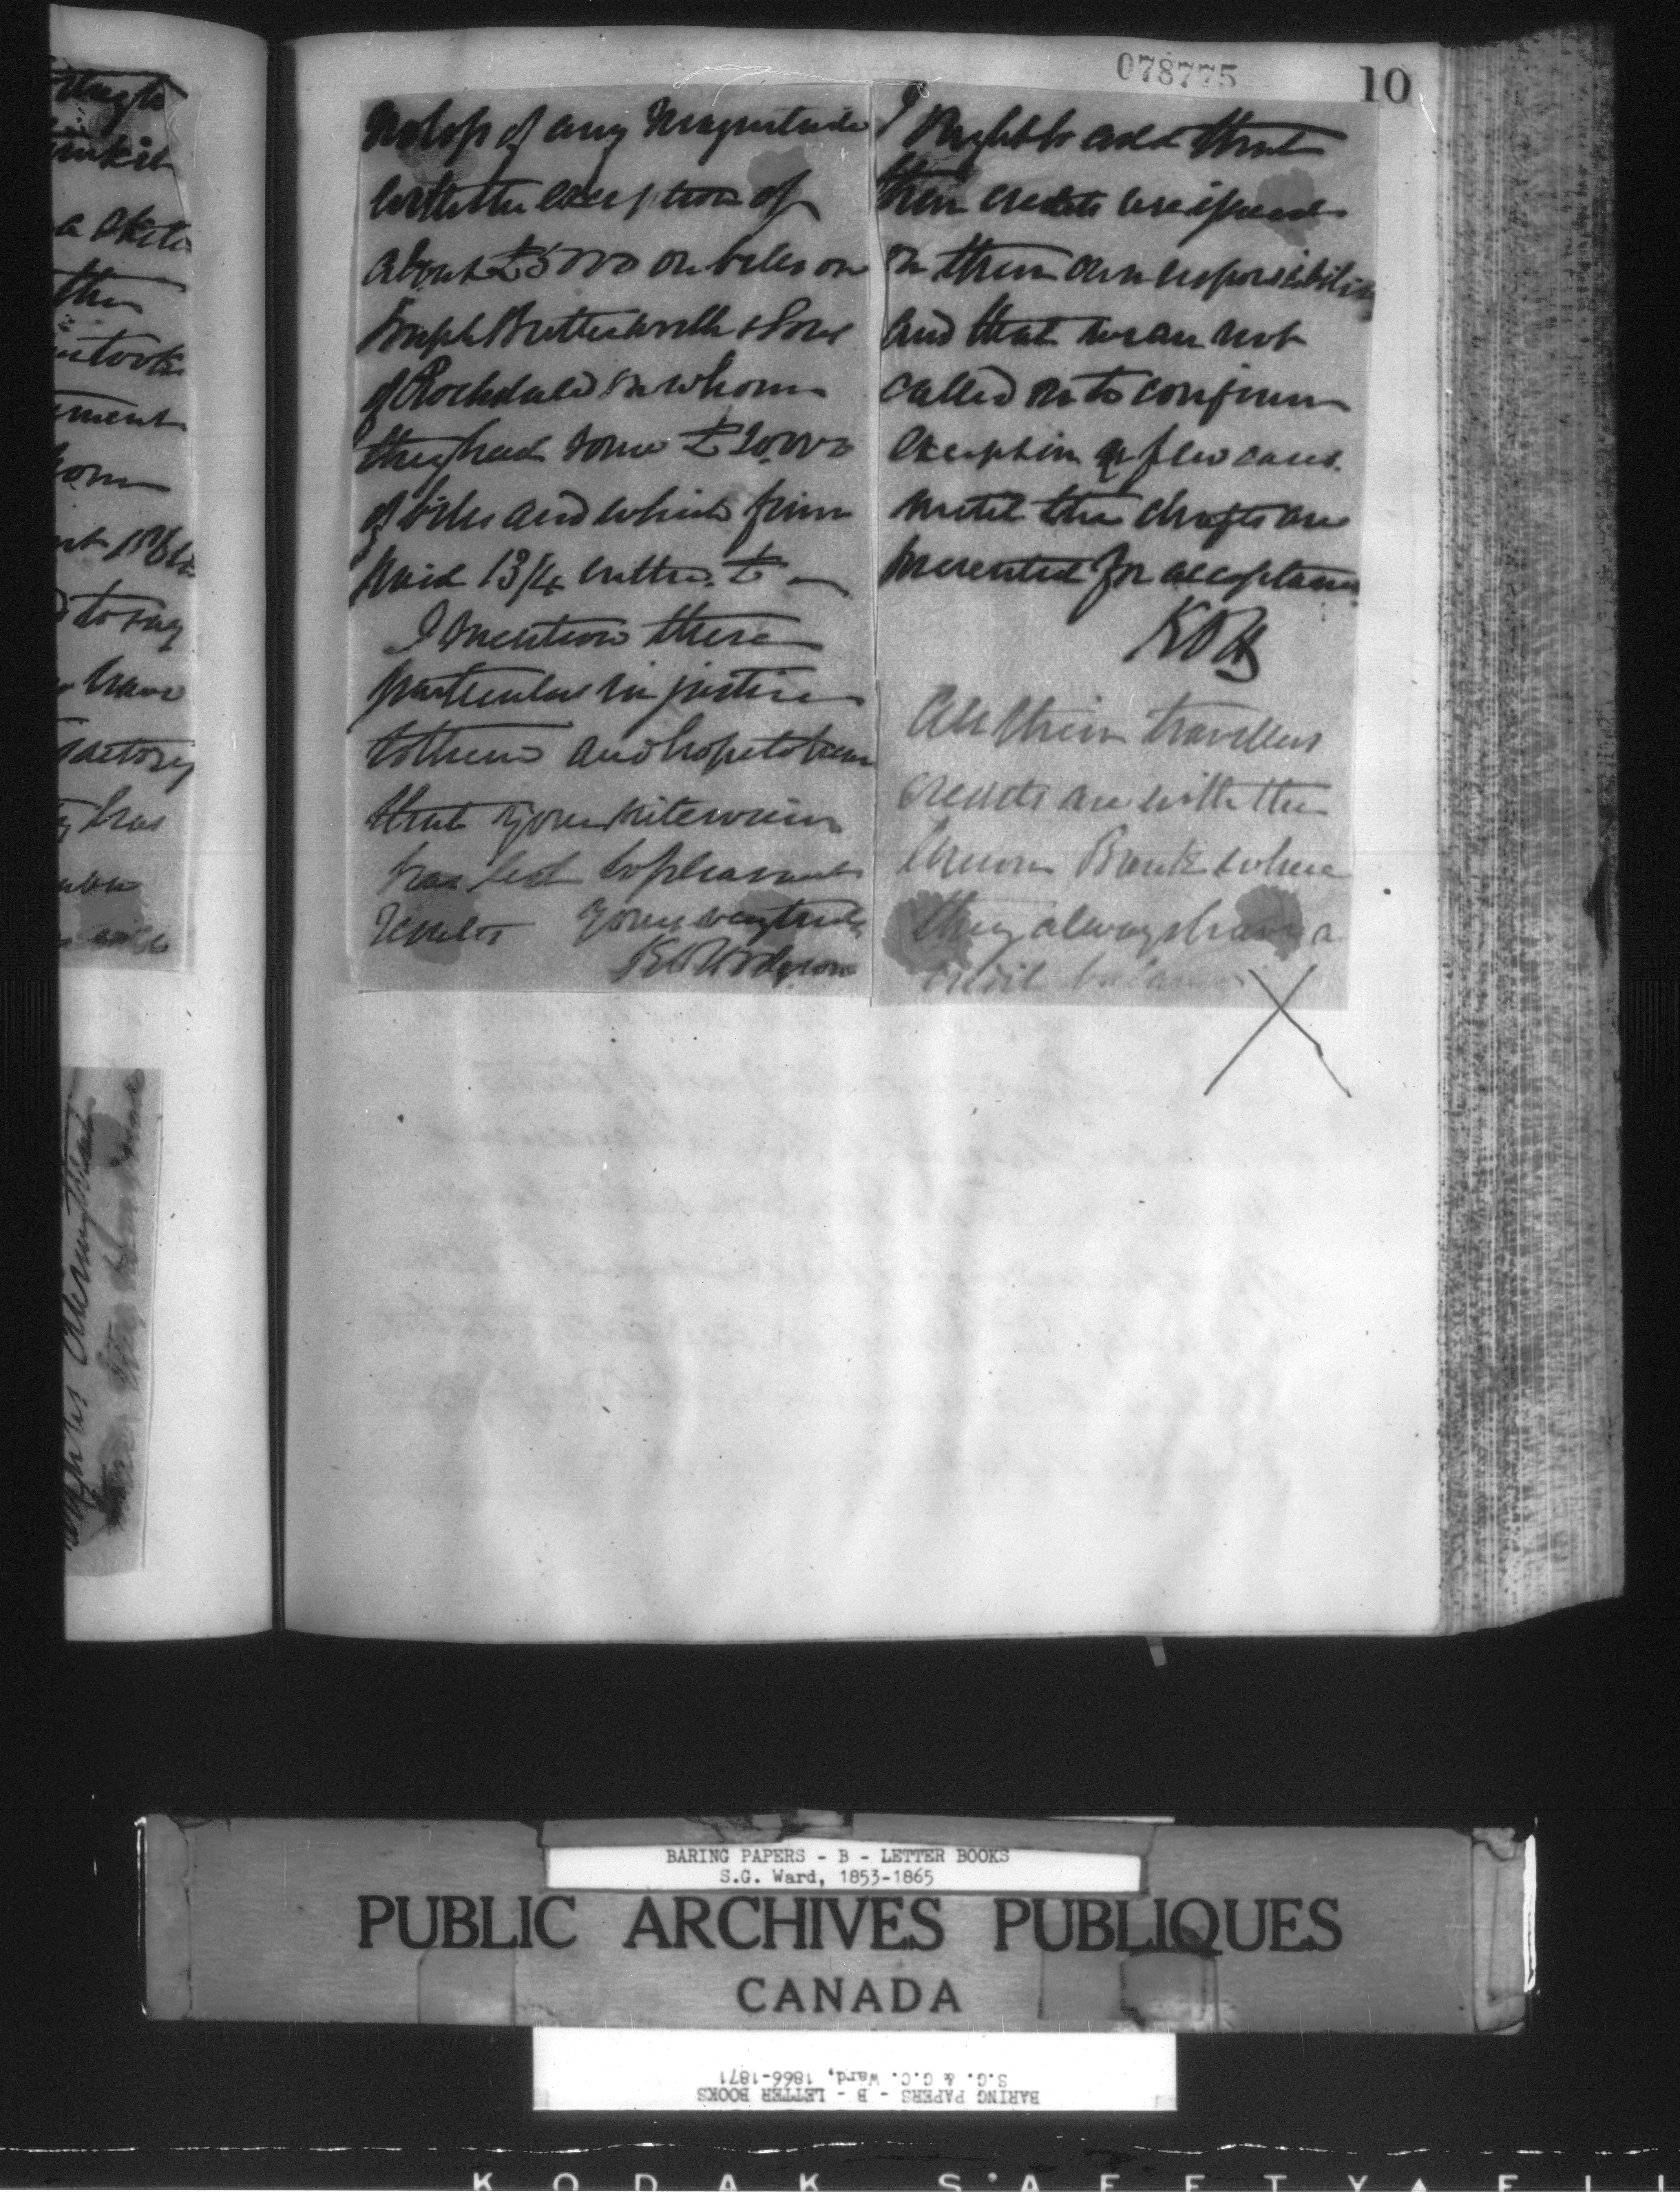 078775
10
no loss of any magnitude
with the exception of
about £5000 on bills on
Joseph Butterworth & Sons
of Rochdale on whom
they had some £20,000
of bills and which firm
paid 13/4 in the £ —
I mention these
particulars in justice
to them and hope to hear
that your interview
has led to pleasant
results Yours very truly
K D Hodgson
I ought to add that
their credits are issued
on their own responsibility
and that we are not
called on to confirm
except in a few cases
until the drafts are
presented for acceptance
KDH
All their travellers
credits are with the
Union Bank where
they always have a
credit balance
ught
a
the
took
ment
om
to say
have
factory
has
BARING PAPERS - B - LETTER BOOKS
S.G. Ward, 1853-1865
PUBLIC ARCHIVES PUBLIQUES
CANADA
BARING PAPERS - B - LETTER BOOKS
S.G. & G.C. Ward, 1866-1871
KODAK SAFETY FIL